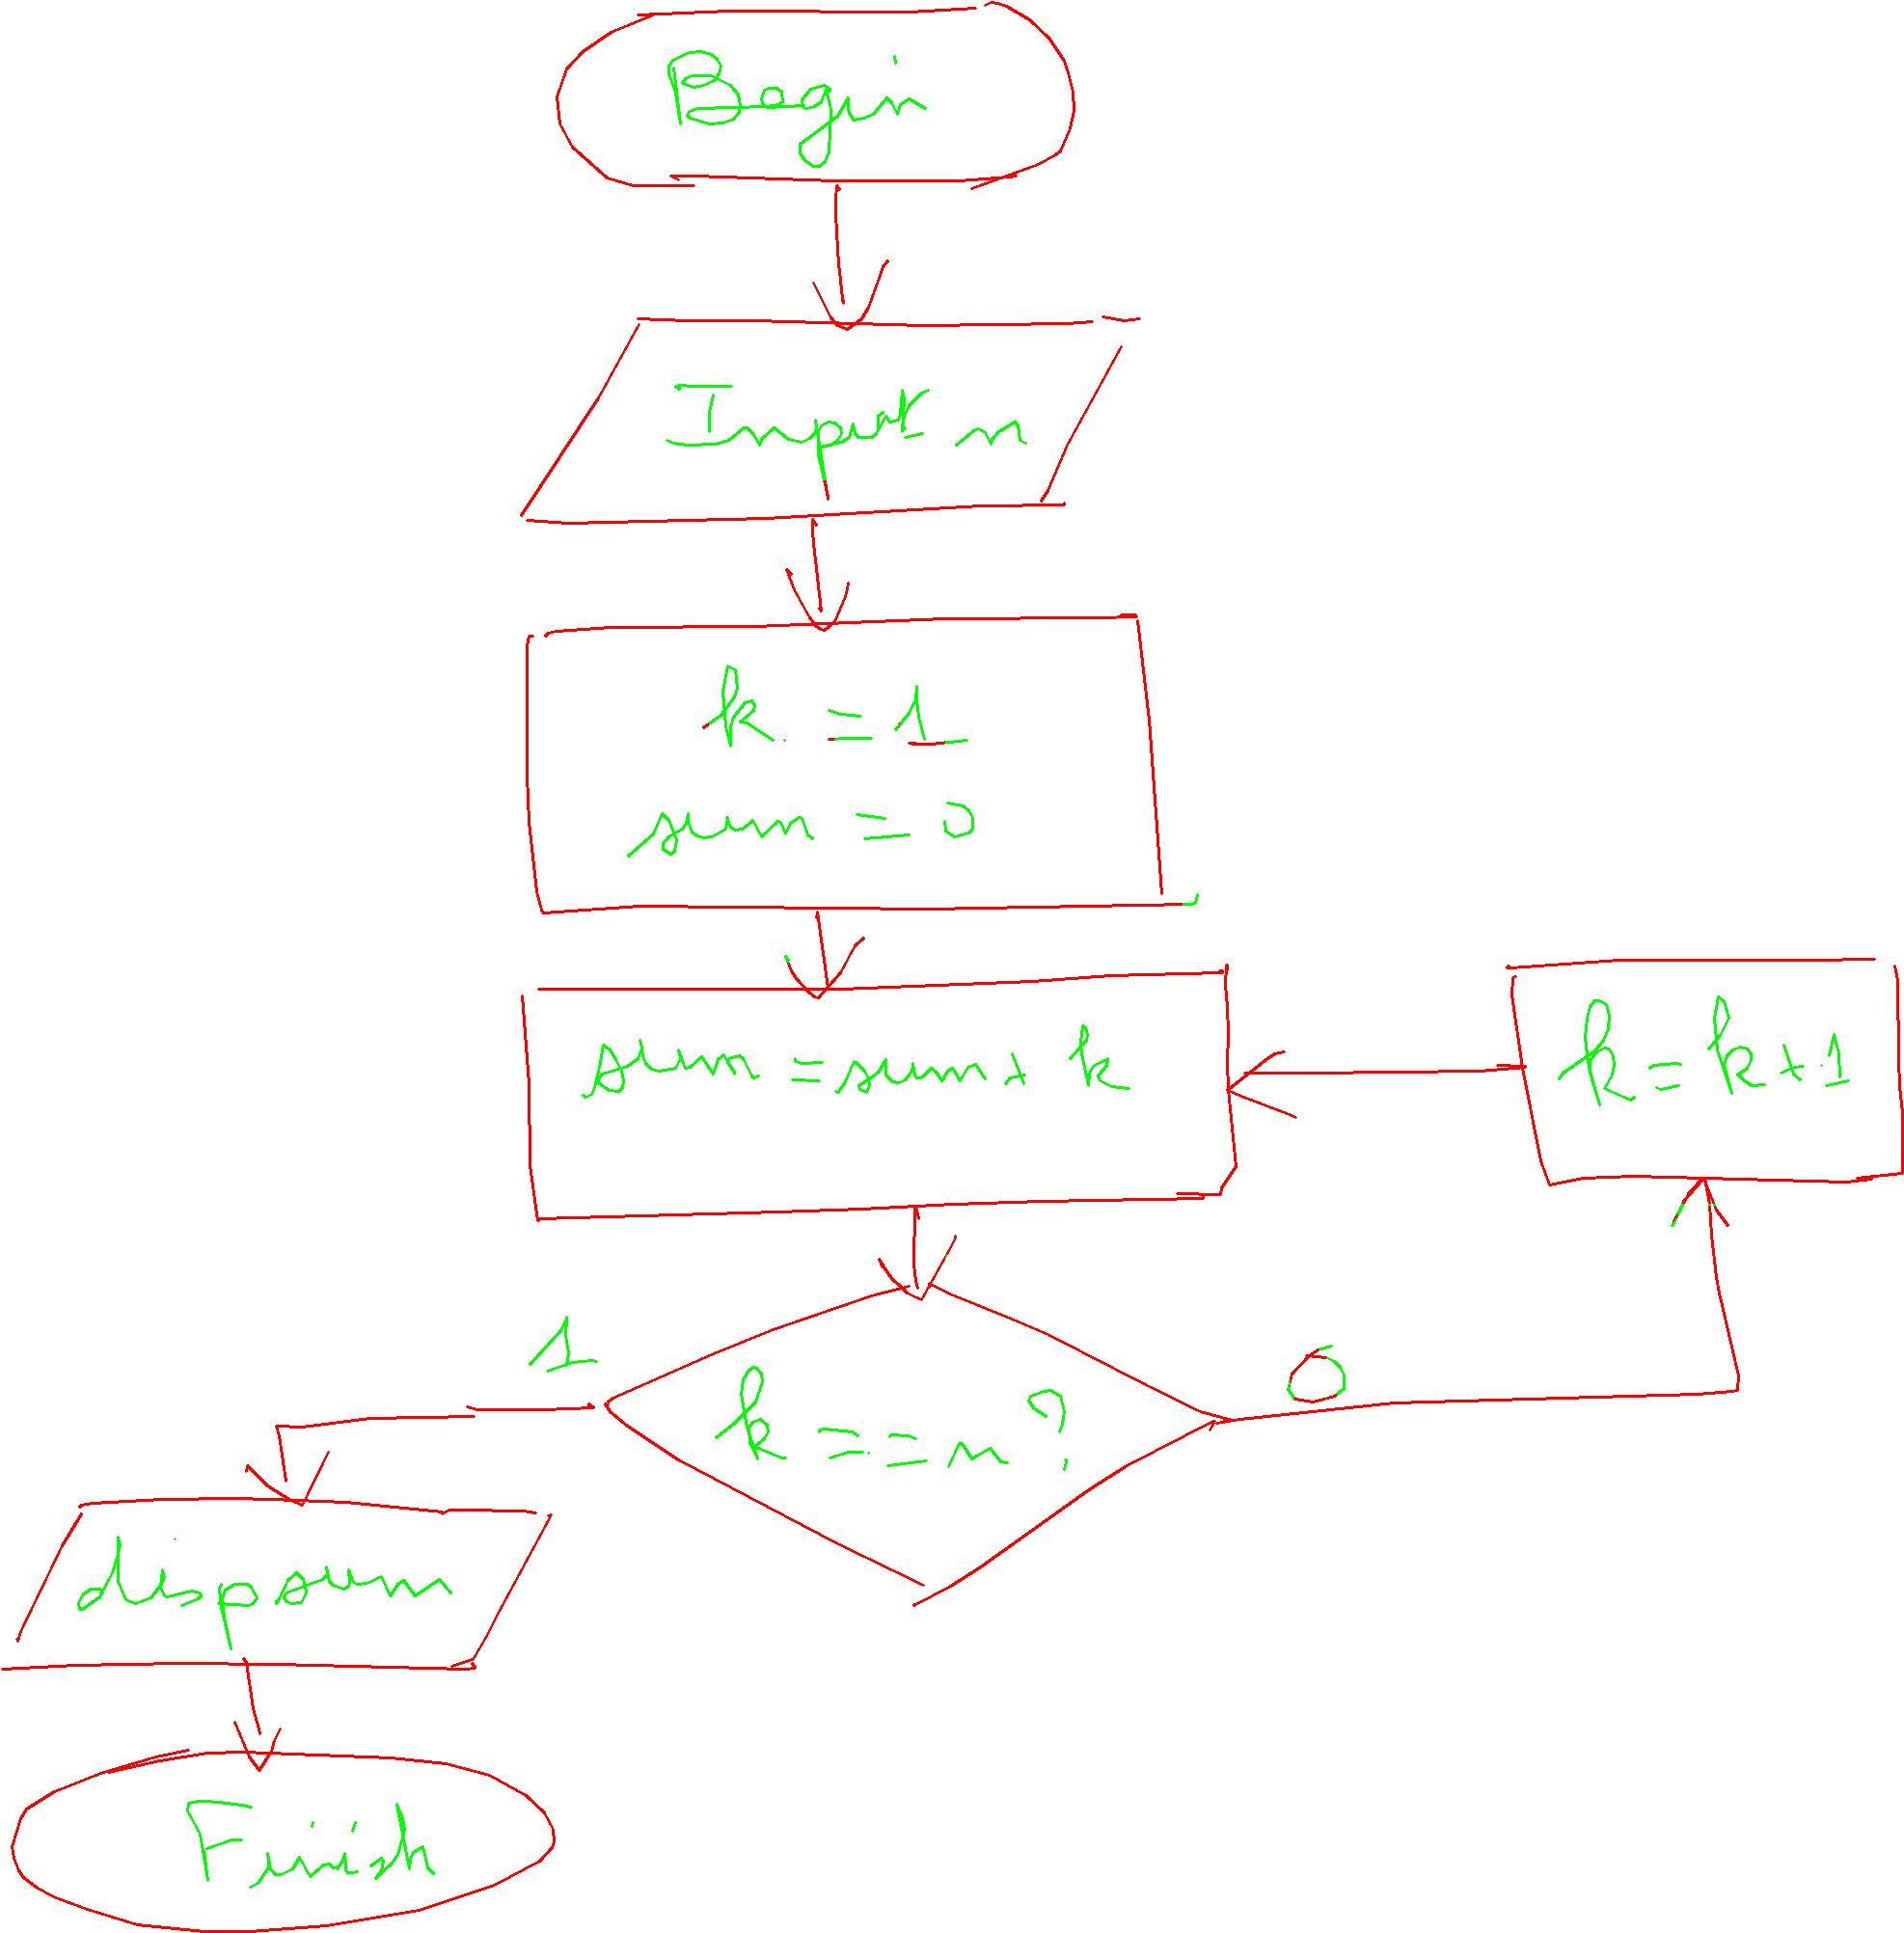 Begin
Input n
k = 1
sum = 0
sum = sum + k
k = k + 1
1
0
k == n ?
disp sum
Finish